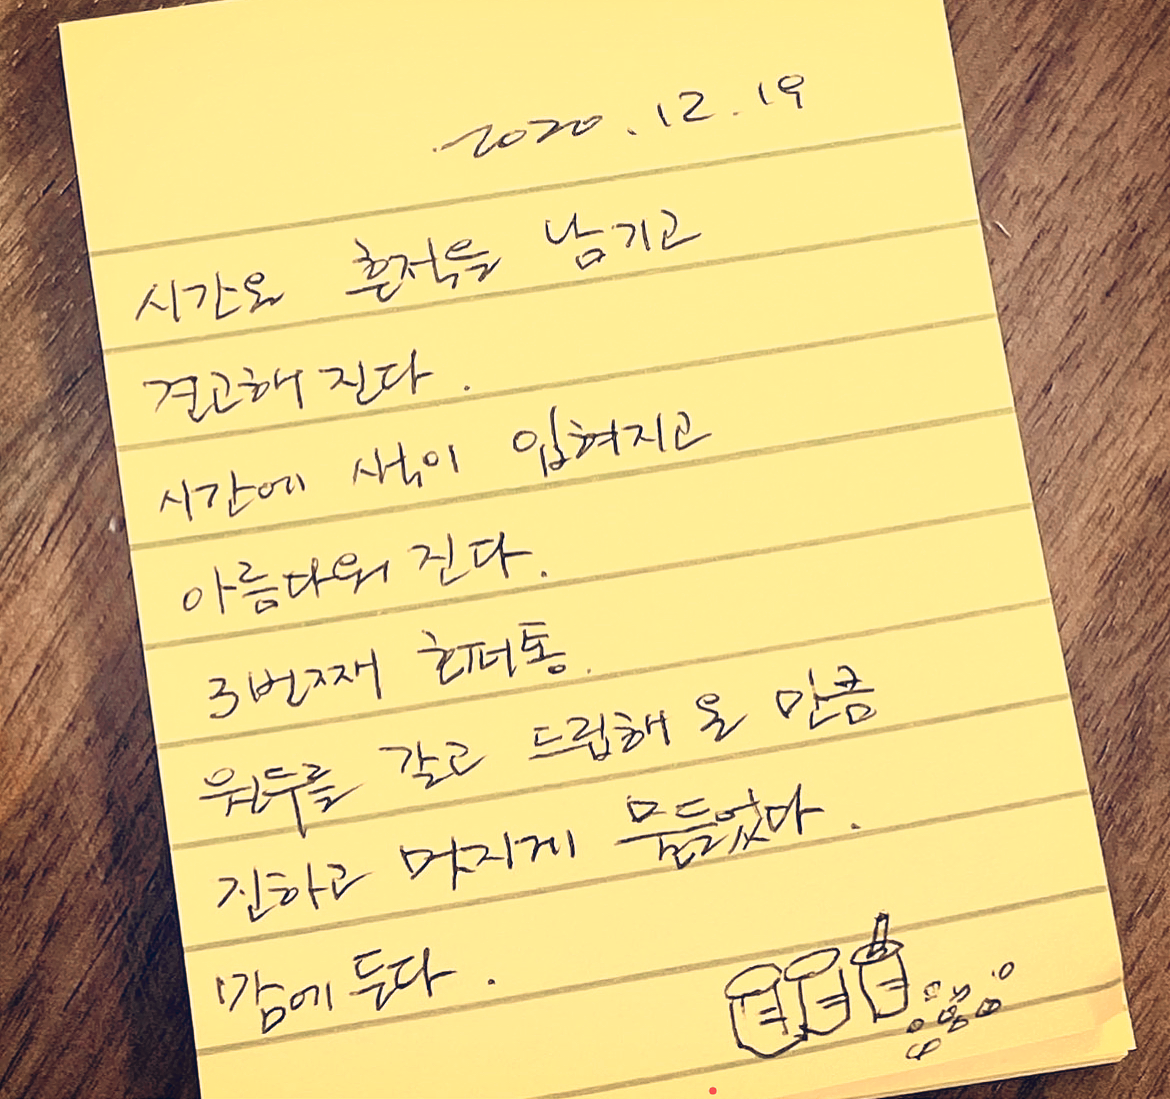 2020.12.19
시간은 흔적을 남기고
견고해 진다.
시간에 색이 입혀지고
아름다워 진다.
3번째 흔퍼통.
원두를 갈고 드립해 온 만큼
진하고 멋지게 물들었다.
맘에 든다.